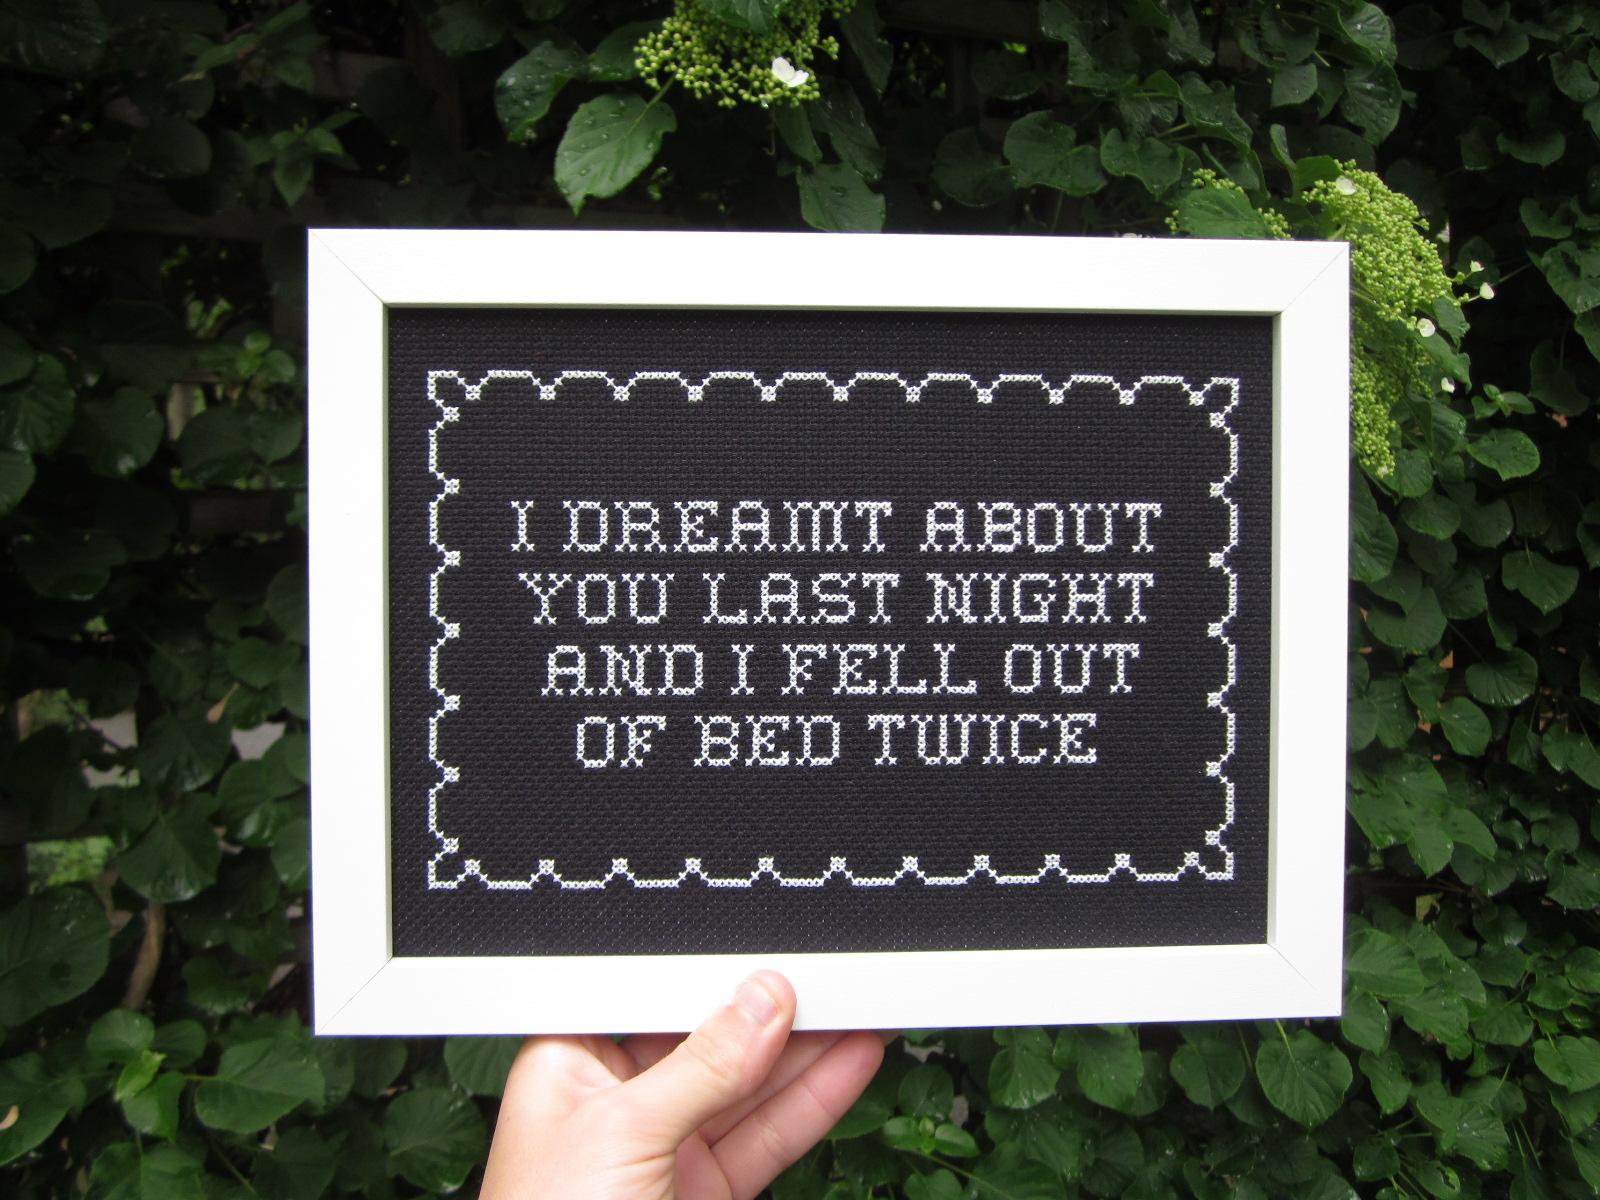 I DREAMT ABOUT
YOU LAST NIGHT
AND I FELL OUT
OF BED TWICE